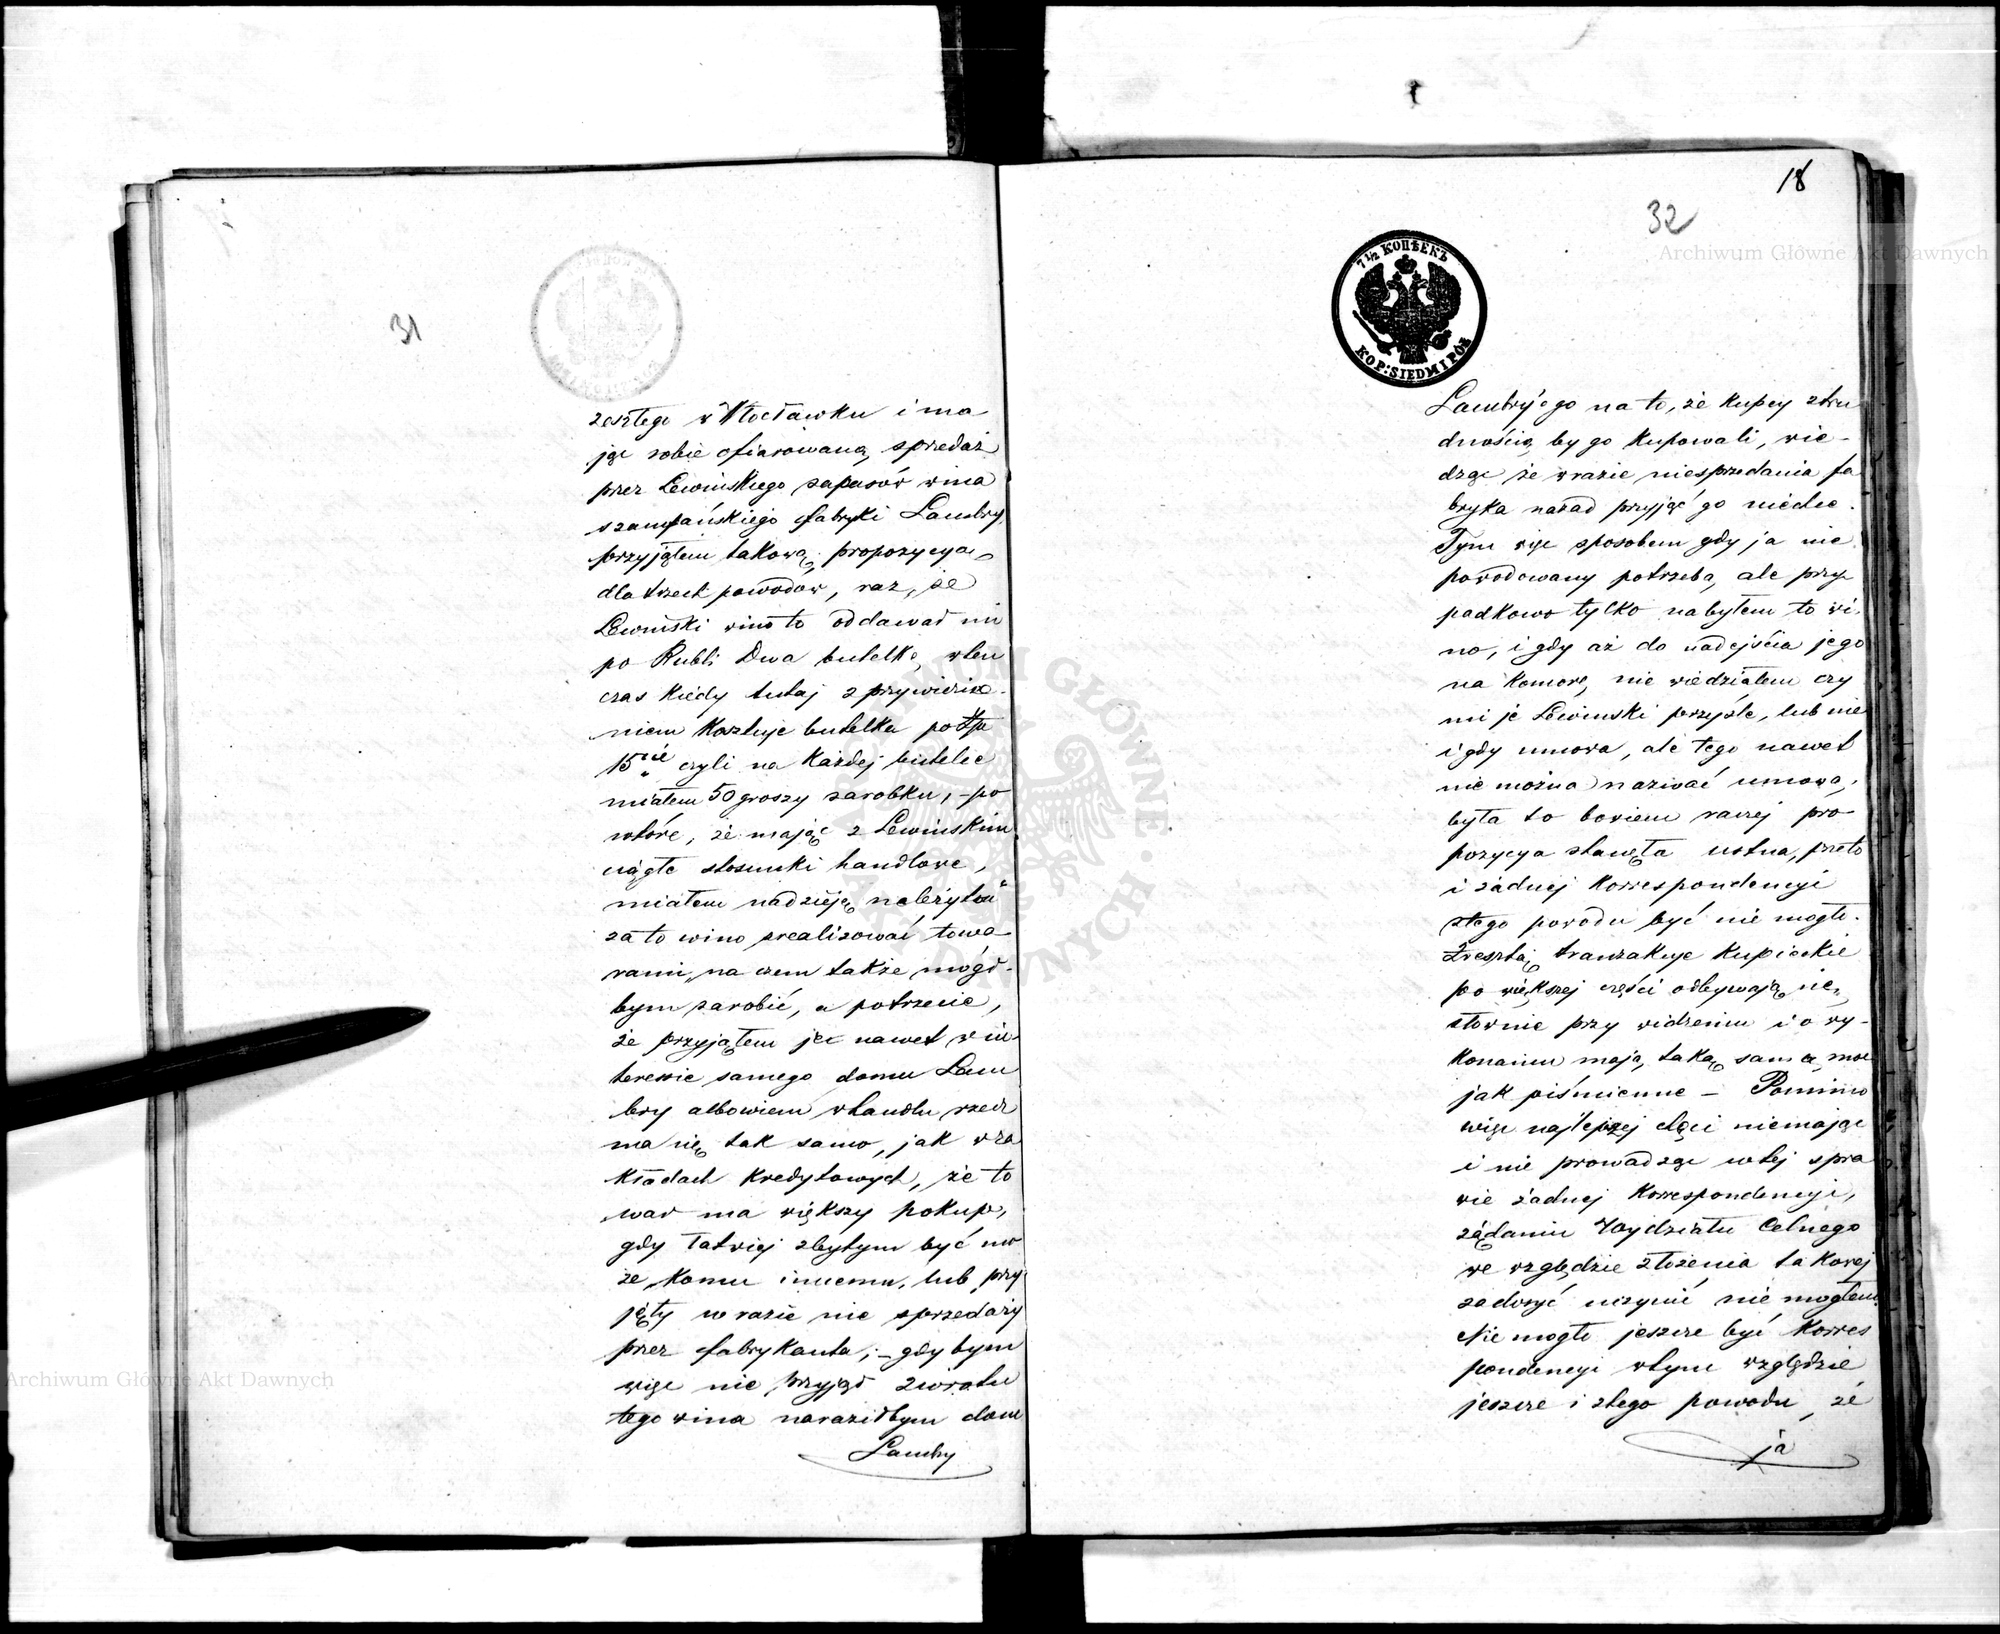 31
zeszłego w Włocławku i ma
jąc sobie ofiarowaną sprzedaż
przez Lewinskiego zapasów wina
szampańskiego fabryki Lambry
przyjąłem takową propozycyą
dla trzech powodów, raz, że
Lewinski wino to oddawał mi
po Rubli Dwa butelkę, wten
czas kiedy tutaj z przywiezie
niem kosztuje butelka po
15 czyli na każdej butelce
miałem 50 groszy zarobku, – po
wtóre, że mając z Lewinskim
ciągłe stosunki handlowe,
miałem nadzieję należytość
za to wino zrealizować towa
rami, na czem także mógł
bym zarobić, a potrzecie,
że przyjąłem je nawet w in
teressie samego domu Lam
bry albowiem w handlu rzecz
ma się tak samo, jak w za
kładach kredytowych, że to
war ma większy pokup,
gdy łatwiej zbytym być mo
że komu innemu, lub przy
jęty w razie nie sprzedaży
przez fabrykanta; – gdy bym
więc nie przyjął zwrotu
tego wina naraziłbym dom
Lambry
18
32
7 ½ КОПѢЕКЪ
KOP: SIEDM I PÓŁ
Lambry'ego na to, że kupcy z tru
dnością by go kupowali, wie-
dząc że w razie niesprzedania fa
bryka nazad przyjąć go niechce.
Tym więc sposobem gdy ja nie
powodowany potrzebą, ale przy
padkowo tylko nabyłem to wi
no, i gdy aż do nadejścia jego
na Komorę, nie wiedziałem czy
mi je Lewinski przyśle, lub nie
i gdy umowa, ale tego nawet
nie można nazwać umową,
była to bowiem raczej pro
pozycya stanęła ustna, przeto
i żadnej korrespondencyi
z tego powodu być nie mogło.
Zresztą tranzakcye kupieckie
po większej części odbywają się
słownie przy widzeniu i o wy-
konaniu mają taką samą moc
jak piśmienne – Pomimo
więc najlepszej chęci niemając
i nie prowadząc w tej spra
wie żadnej korrespondencyi,
żądaniu Wydziału Celnego
we względzie złożenia takowej
zadosyć uczynić nie mogłem.
Nie mogło jeszcze być korres
pondencyi w tym względzie
jeszcze i z tego powodu, że
ja
Archiwum Główne Akt Dawnych
Archiwum Główne Akt Dawnych